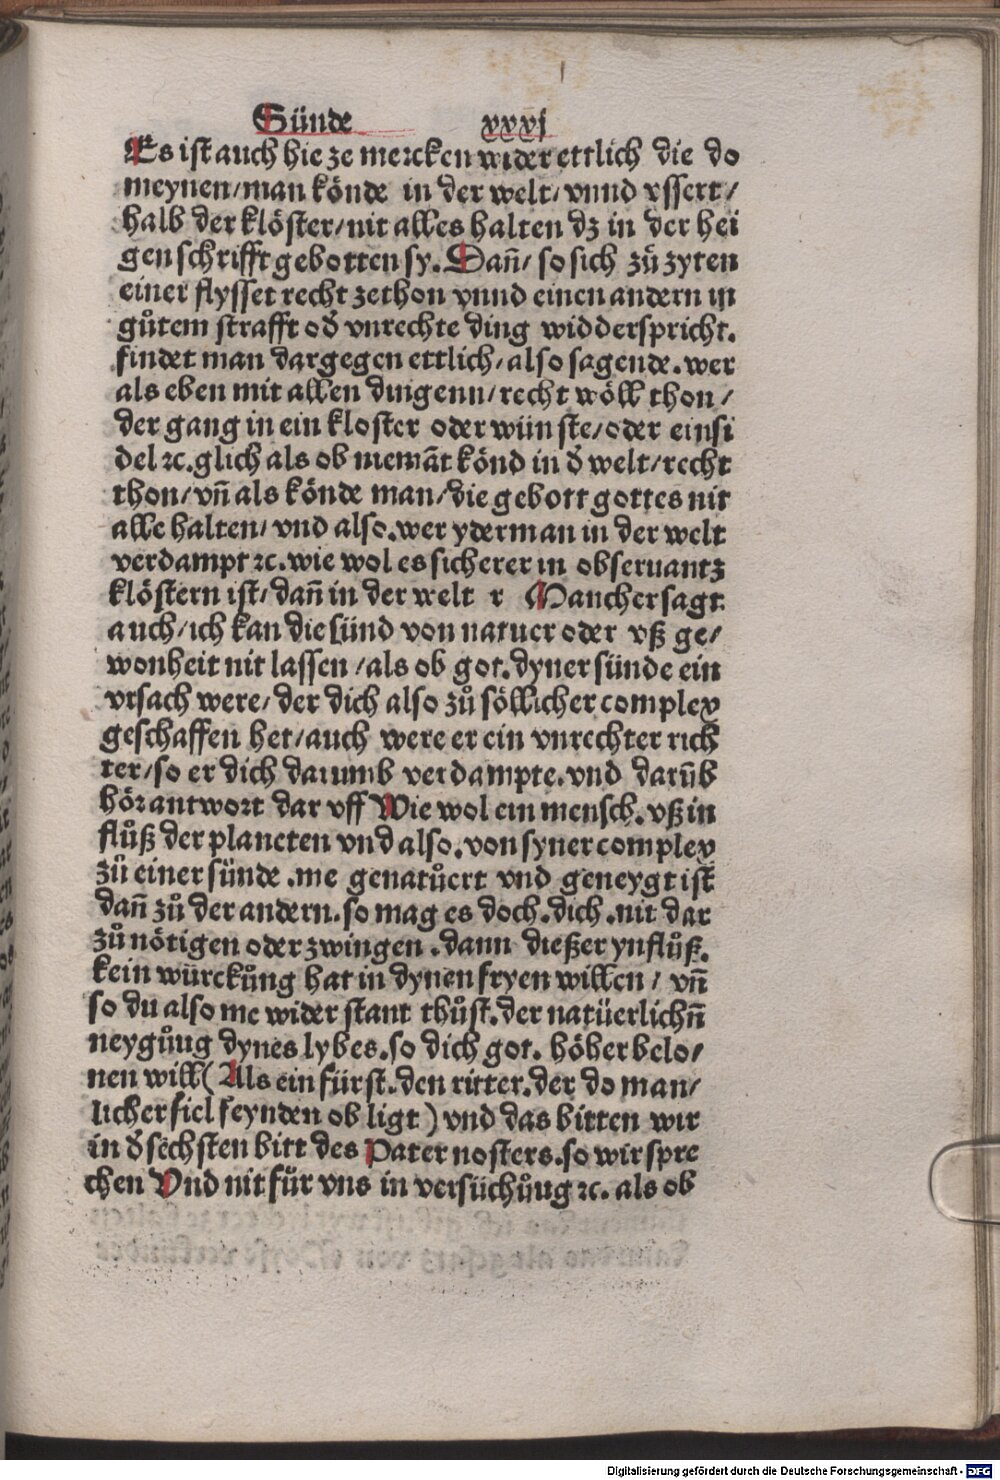 Sünde xxxj
Es ist auch hie ze mercken wider ettlich die do
meynen/man könde in der welt/vnnd vssert/
halb der klöster/nit alles halten dz in der hei
gen schrifft gebotten sy. Dañ/ so sich zů zyten
einer flysset recht zethon vnnd einen andern in
gůtem strafft od̕ vnrechte ding widderspricht.
findet man dargegen ettlich/also sagende.wer
als eben mit allen dingenn/recht wöll thon/
der gang in ein kloster oder wünste/oder einsi
del ⁊c.glich als ob niemãt könd in d̕ welt/recht
thon/vñ als könde man/die gebott gottes nit
alle halten/vnd also.wer yderman in der welt
verdampt ⁊c.wie wol es sicherer in obseruantz
klöstern ist/dañ in der welt r Mancher sagt
auch/ich kan die sünd von natuer oder vß ge/
wonheit nit lassen/als ob got.dyner sünde ein
vrsach were/der dich also zů söllicher complex
geschaffen het/auch were er ein vnrechter rich
ter/so er dich darumb verdampte.vnd darũb
hör antwort dar vff Wie wol ein mensch.vß in
flůß der planeten vnd also.von syner complex
zů einer sünde.me genatůert vnd geneygt ist
dañ zů der andern.so mag es doch.dich.nit dar
zů nötigen oder zwingen.dann dießer ynflůß.
kein würckůng hat in dynen fryen willen/vñ
so du also me wider stant thůst.der natüerlichñ
neygůug dynes lybes.so dich got. höher belo/
nen will(Als ein fürst.den ritter.der do man/
licher fiel feynden ob ligt)vnd das bitten wir
in d̕ sechsten bitt des Pater nosters.so wir spre
chen Vnd nit für vns in versüchůug ⁊c. als ob
Digitalisierung gefördert durch die Deutsche Forschungsgemeinschaft - DFG